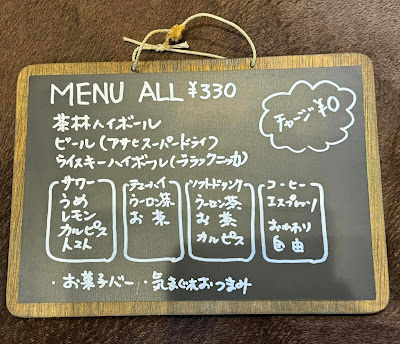 MENU ALL ¥330
チャージ ¥0
茶林ハイボール
ビール(アサヒスーパードライ)
ウイスキーハイボール(ブラックニッカ)
サワー
うめ
レモン
カルピス
トマト
チューハイ
ウーロン茶
お茶
ソフトドリンク
ウーロン茶
お茶
カルピス
コーヒー
エスプレッソ
おかわり
自由
・お菓子バー ・気まぐれおつまみ